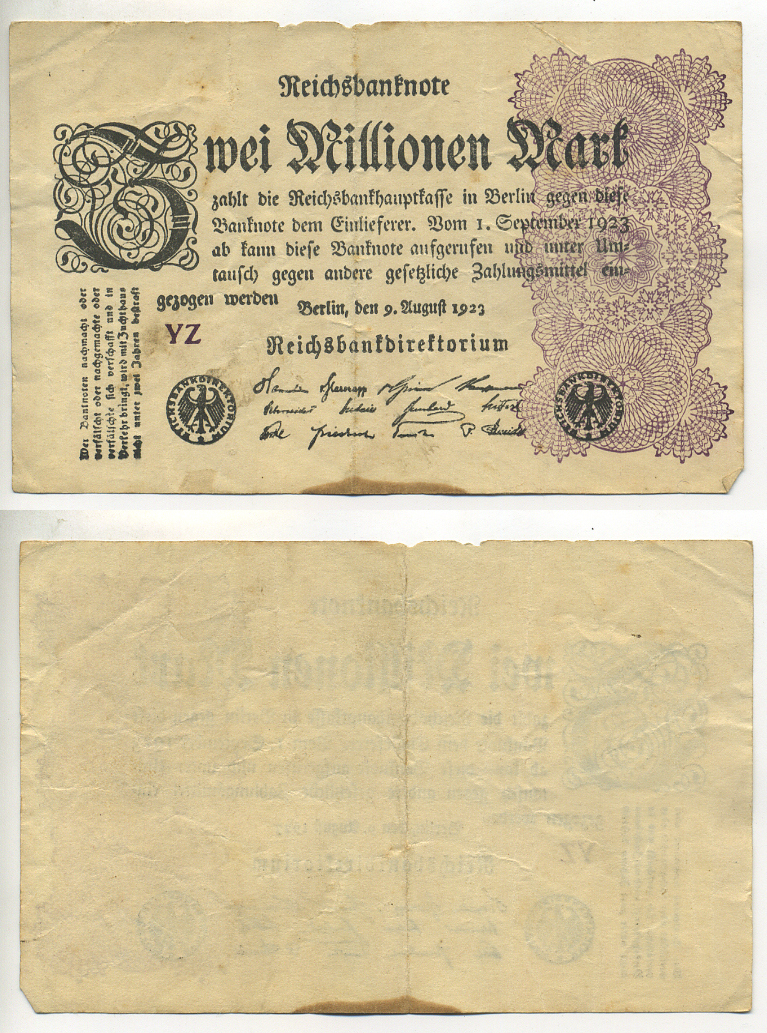 Reichsbanknote
Zwei Millionen Mark
zahlt die Reichsbankhauptkasse in Berlin gegen diese
Banknote dem Einlieferer. Vom 1. September 1923
ab kann diese Banknote aufgerufen und unter Um-
tausch gegen andere gesetzliche Zahlungsmittel ein-
gezogen werden
Berlin, den 9. August 1923
YZ
Reichsbankdirektorium
REICHSBANKDIREKTORIUM
REICHSBANKDIREKTORIUM
Wer Banknoten nachmacht oder
verfälscht oder nachgemachte oder
verfälschte sich verschafft und in
Verkehr bringt, wird mit Zuchthaus
nicht unter zwei Jahren bestraft